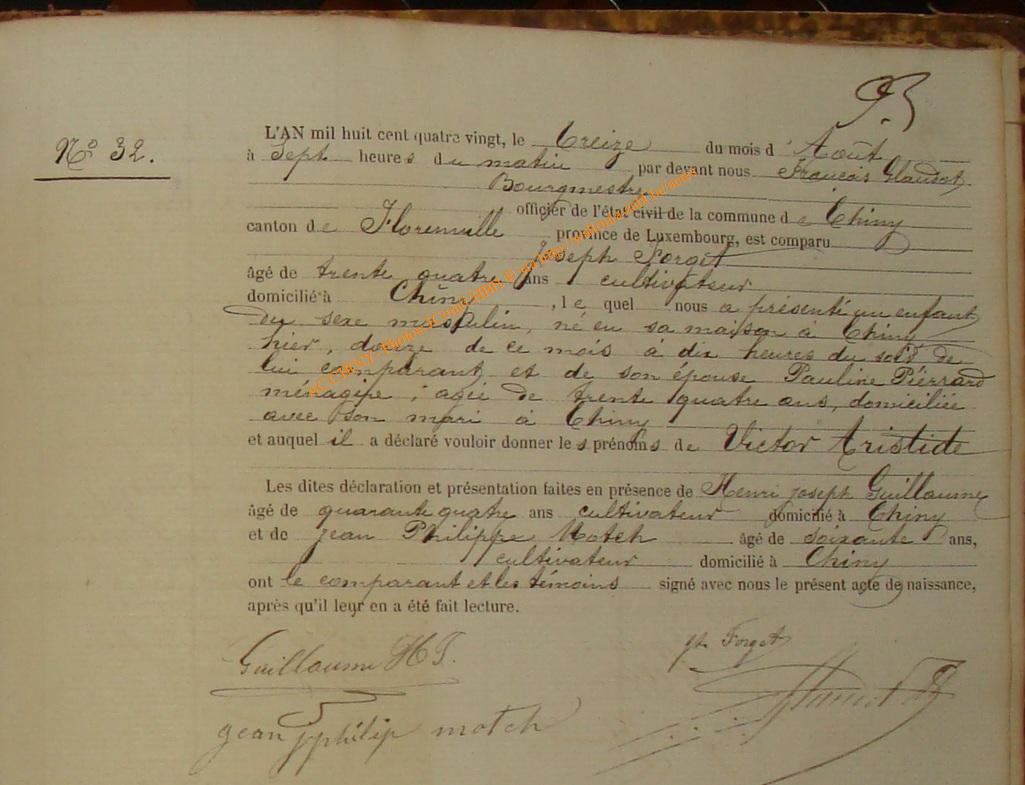 93
N° 32.
L'AN mil huit cent quatre vingt, le treize du mois d'Août
à Sept heures du matin par devant nous François Glaudot
Bourgmestre
officier de l'état civil de la commune de Chiny
canton de Florenville province de Luxembourg, est comparu
Joseph Forget
âgé de trente quatre ans cultivateur
domicilié à Chiny, le quel nous a présenté un enfant
du sexe masculin, né en sa maison à Chiny
hier, douze de ce mois à dix heures du soir de
lui comparant et de son épouse Pauline Piérrard
ménagère, agée de trente quatre ans, domiciliée
avec son mari à Chiny
et auquel il a déclaré vouloir donner les prénoms de Victor Aristide
Les dites déclaration et présentation faites en présence de Henri Joseph Guillaume
âgé de quarante quatre ans cultivateur domicilié à Chiny
et de Jean Philippe Motch âgé de soixante ans,
cultivateur domicilié à Chiny
ont le comparant et les témoins signé avec nous le présent acte de naissance,
après qu'il leur en a été fait lecture.
Guillaume H J. jh Forget
jean philip motch